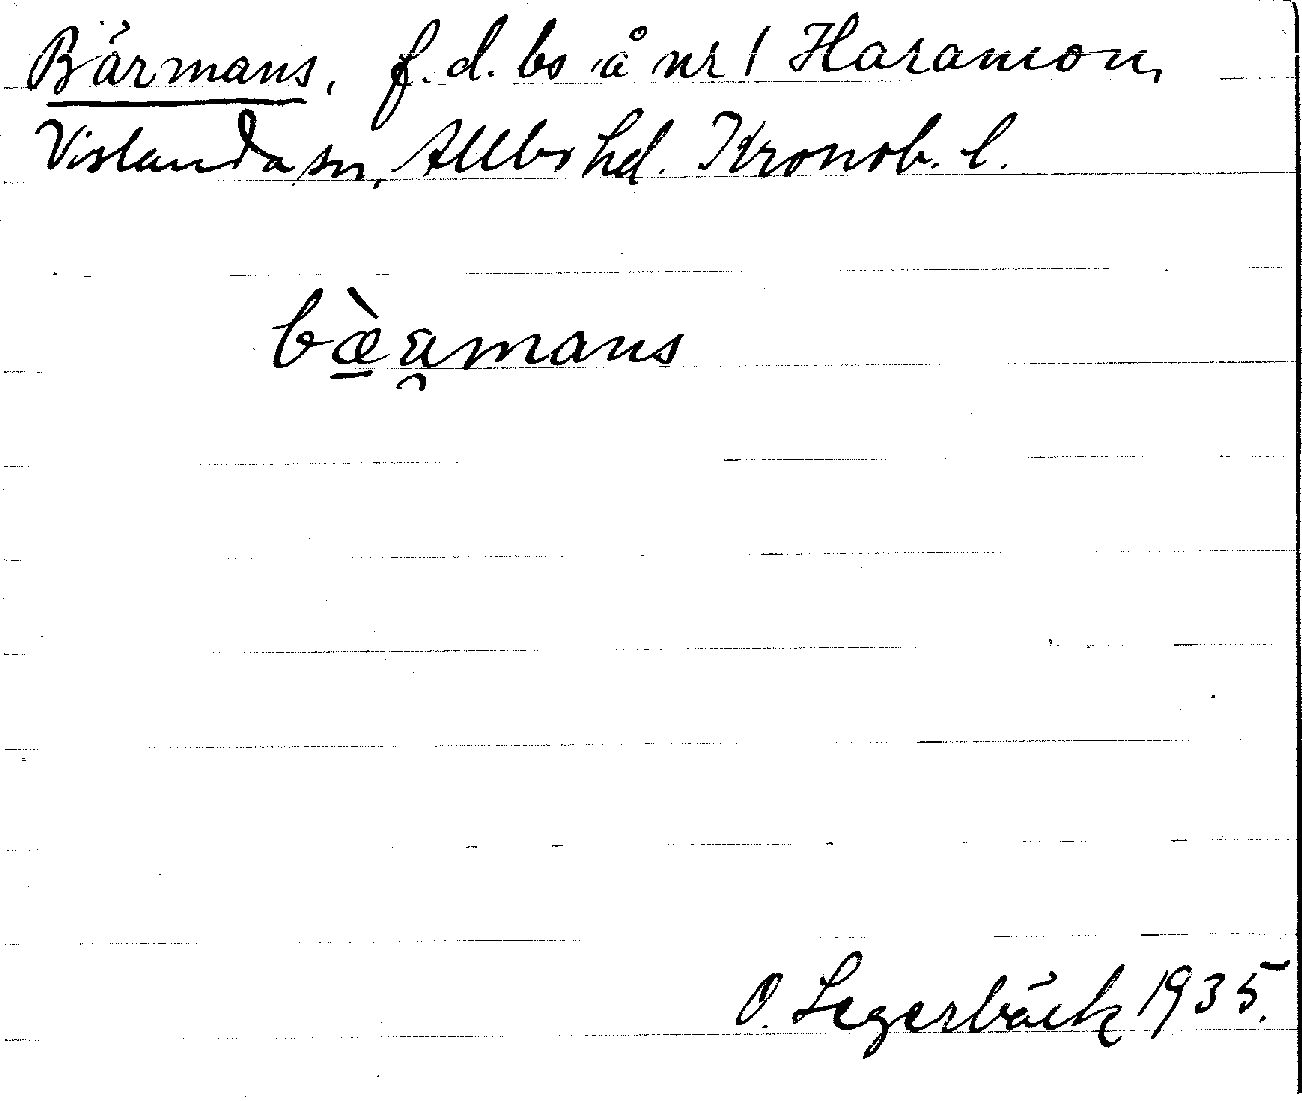 Bärmans, f.d. bs å nr 1 Haramon,
Vislanda sn, Allbo hd. Kronob. l.
bæ̀a̯mans
O. Segerbäck 1935.